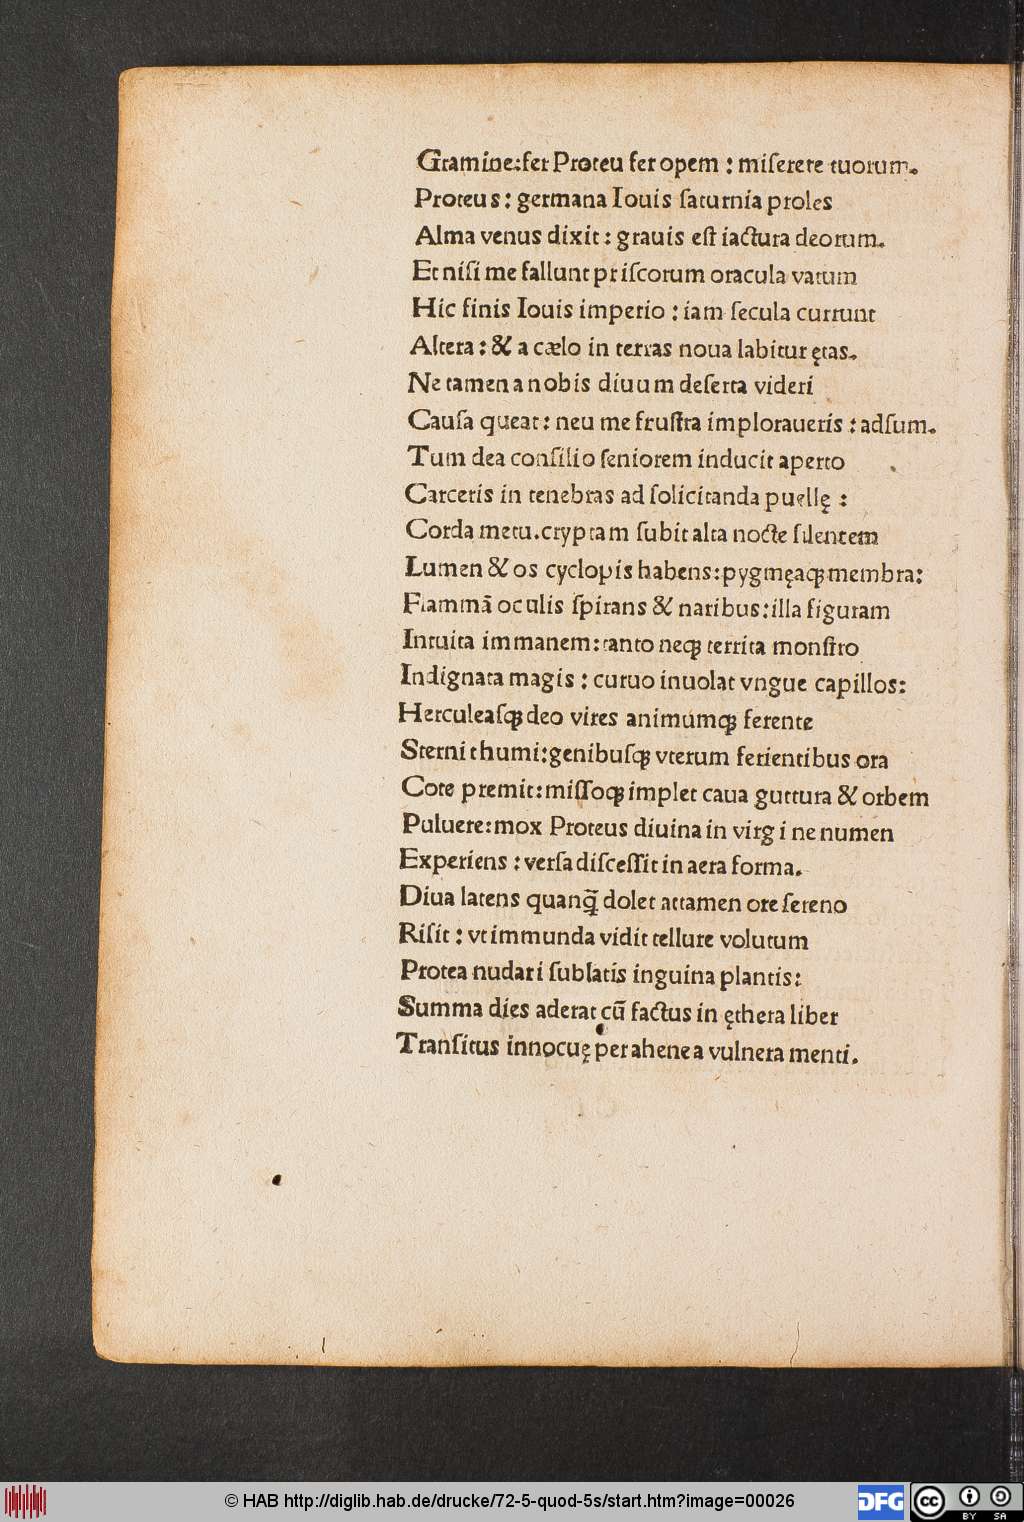 Gramine:fer Proteu fer opem : miſerere tuorum.
Proteus : germana Iouis ſaturnia proles
Alma venus dixit : grauis eſt iactura deorum.
Et niſi me fallunt priſcorum oracula vatum
Hic finis Iouis imperio : iam ſecula currunt
Altera : & a cælo in terras noua labitur ętas.
Ne tamen a nobis diuum deſerta videri
Cauſa queat : neu me fruſtra imploraueris : adſum.
Tum dea conſilio ſeniorem inducit aperto
Carceris in tenebras ad ſolicitanda puellę :
Corda metu. cryptam ſubit alta nocte ſilentem
Lumen & os cyclopis habens : pygmęaꝗ membra:
Flammā oculis ſpirans & naribus : illa figuram
Intuita immanem : tanto neꝗ territa monſtro
Indignata magis : curuo inuolat vngue capillos:
Herculeaſꝗ deo vires animumꝗ ferente
Sternit humi : genibuſꝗ vterum ferientibus ora
Cote premit : miſſoꝗ implet caua guttura & orbem
Puluere : mox Proteus diuina in virgine numen
Experiens : verſa diſceſſit in aera forma.
Diua latens quanꝗ̃ dolet attamen ore ſereno
Riſit : vt immunda vidit tellure volutum
Protea nudari ſublatis inguina plantis:
Summa dies aderat cū factus in ęthera liber
Tranſitus innocuę per ahenea vulnera menti.
© HAB http://diglib.hab.de/drucke/72-5-quod-5s/start.htm?image=00026
DFG
cc
BY SA